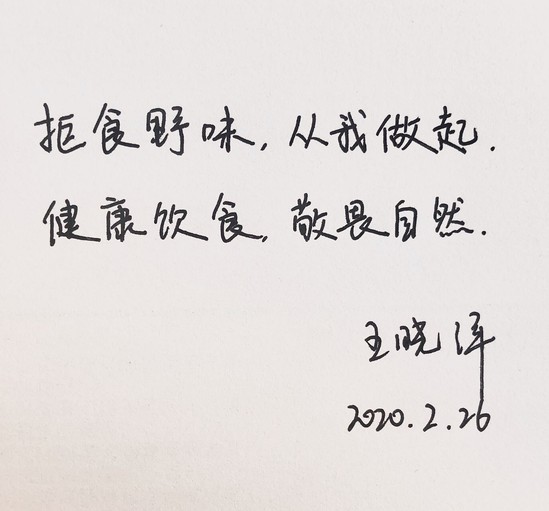 拒食野味,从我做起.
健康饮食,敬畏自然.
王晓洋
2020.2.26